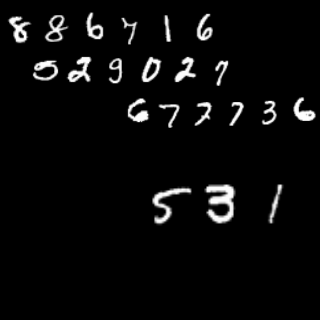 886716
529027
677736
531